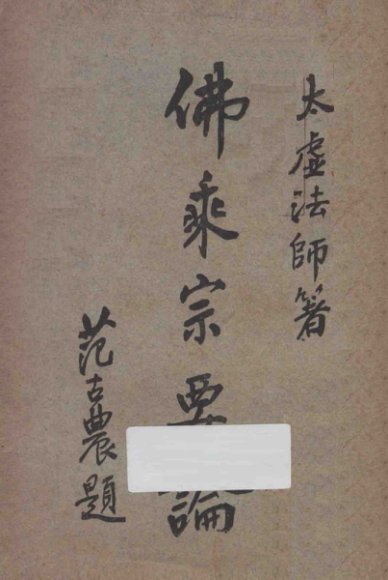 太虛法師箸
佛乘宗要論
范古農題